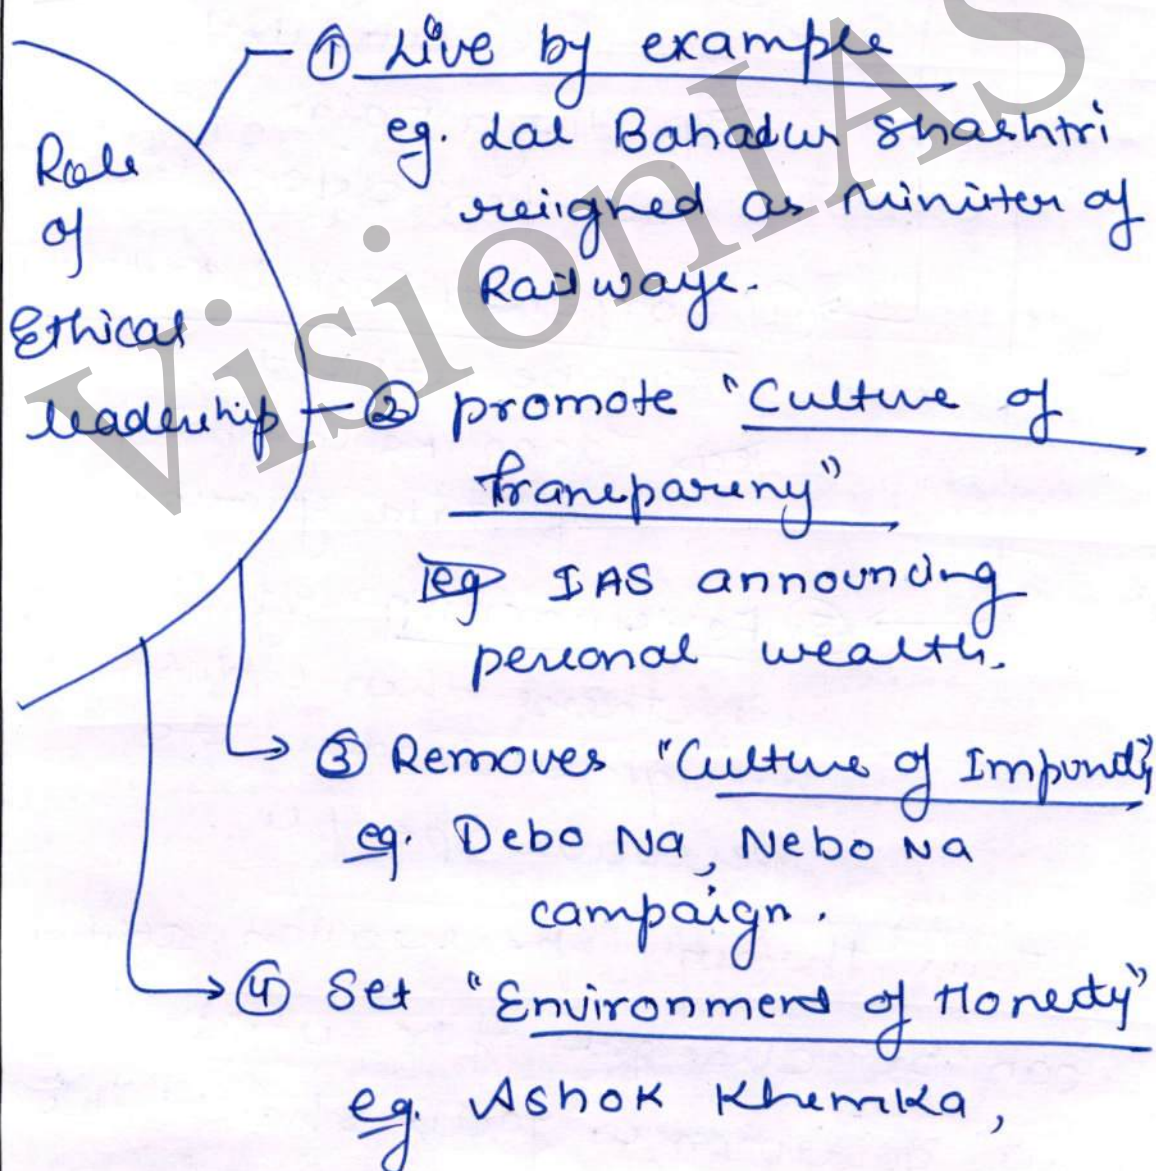 Role
of
Ethical
leadership
① Live by example
eg. Lal Bahadur Shashtri
resigned as Minister of
Railways.
② promote "Culture of
Transparency"
eg IAS announcing
personal wealth.
③ Removes "Culture of Impunity"
eg. Debo Na, Nebo Na
campaign.
④ Set "Environment of Honesty"
eg. Ashok Khemka,
VisionIAS